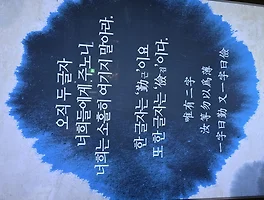 오직 두 글자
너희들에게 주노니
너희는 소홀히 여기지 말아라.
한 글자는 '勤근'이요
또 한 글자는 '儉검'이다.
唯有二字
汝等勿以爲薄
一字曰勤 又一字曰儉